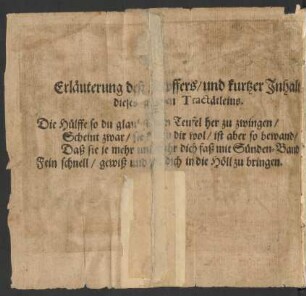 Erläuterung deß Kupffers/ und kurtzer Inhalt
dieses Tractätleins.
Die Hülffe so du Teufel her zu zwingen/
Scheint zwar/ dir wol/ ist aber so bewand/
Daß sie je mehr dich faß mit Sünden-Band
Fein schnell/ gewiß und dich in die Höll zu bringen.